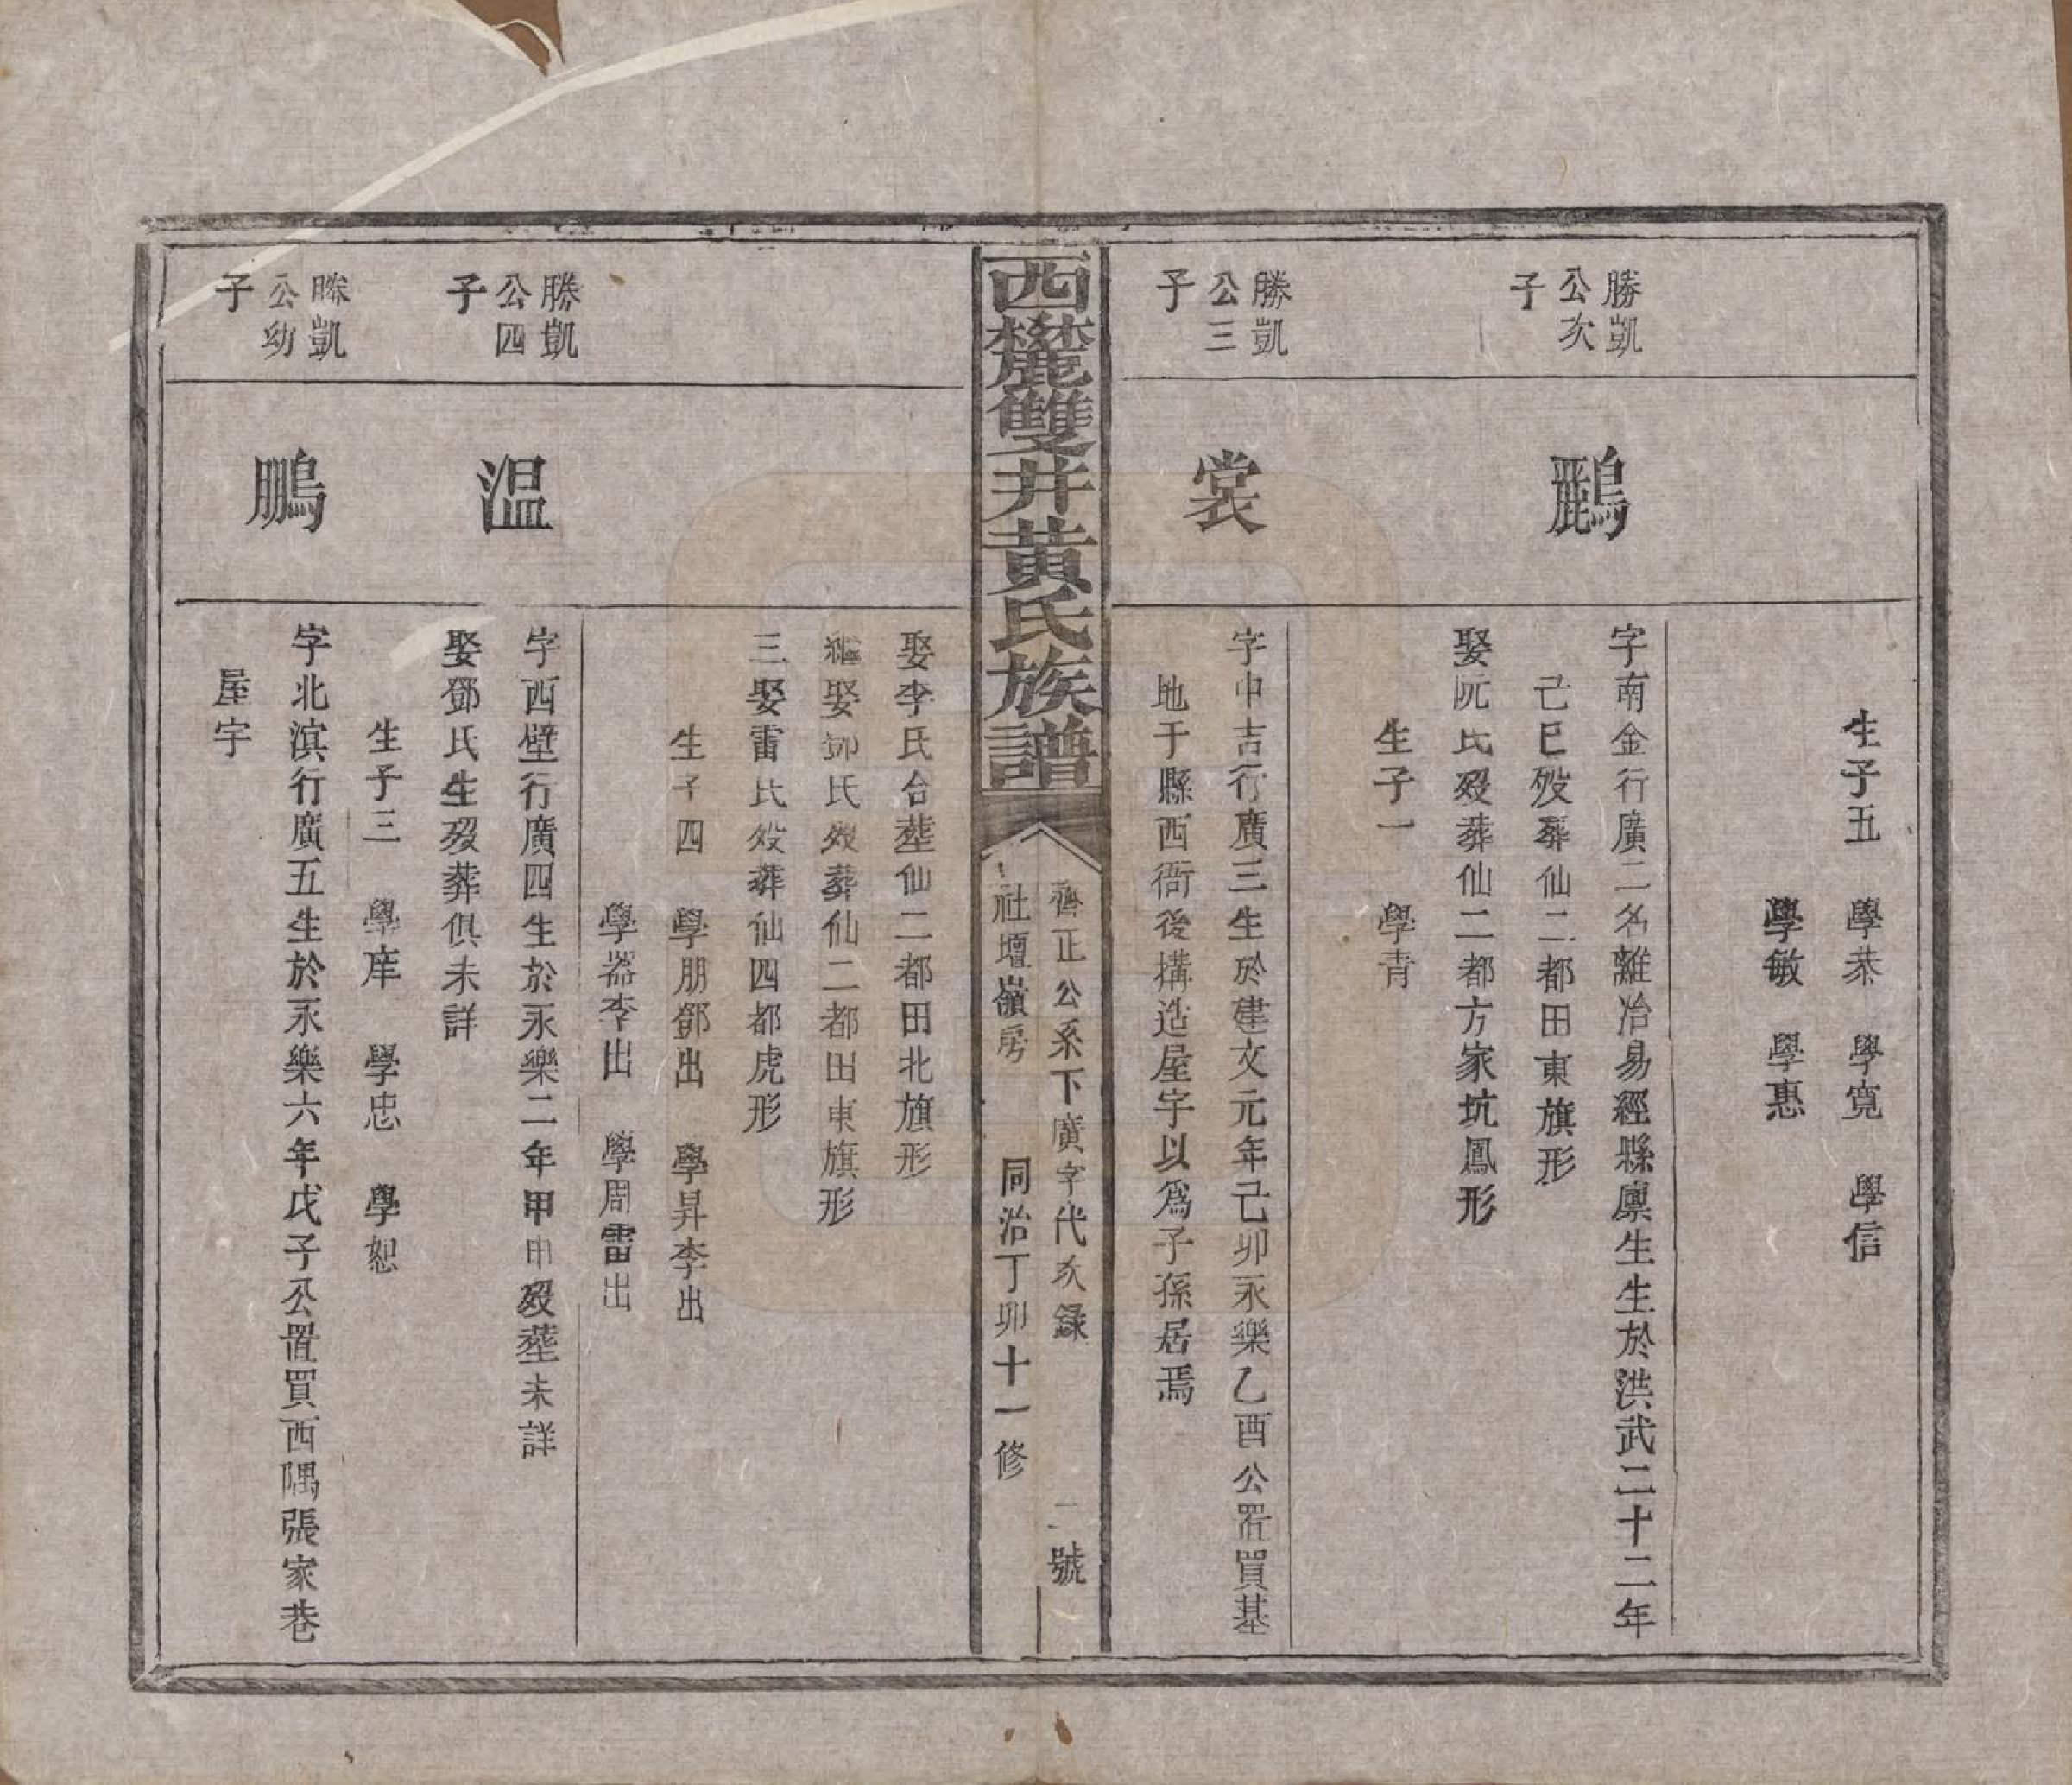 生子五　學恭　學寬　學信
學敏　學惠
勝凱
公次
子
鸝
字南金行廣二名離冶易經縣廩生生於洪武二十二年
己巳歿葬仙二都田東旗形
娶阮氏歿葬仙二都方家坑鳳形
生子一　學青
勝凱
公三
子
裳
字中吉行廣三生於建文元年己卯永樂乙酉公置買基
地于縣西衙後搆造屋宇以爲子孫居焉
西麓雙井黃氏族譜
濟正公系下廣字代次錄　二號
社壇嶺房　同治丁卯十一修
娶李氏合塟仙二都田北旗形
繼娶鄧氏歿葬仙二都田東旗形
三娶雷氏歿葬仙四都虎形
生子四　學朋鄧出　學昇李出
學器李出　學周雷出
勝凱
公四
子
温
字西壁行廣四生於永樂二年甲申歿塟未詳
娶鄧氏生歿葬俱未詳
生子三　學庠　學忠　學恕
勝凱
公幼
子
鵬
字北濵行廣五生於永樂六年戊子公置買西隅張家巷
屋宇